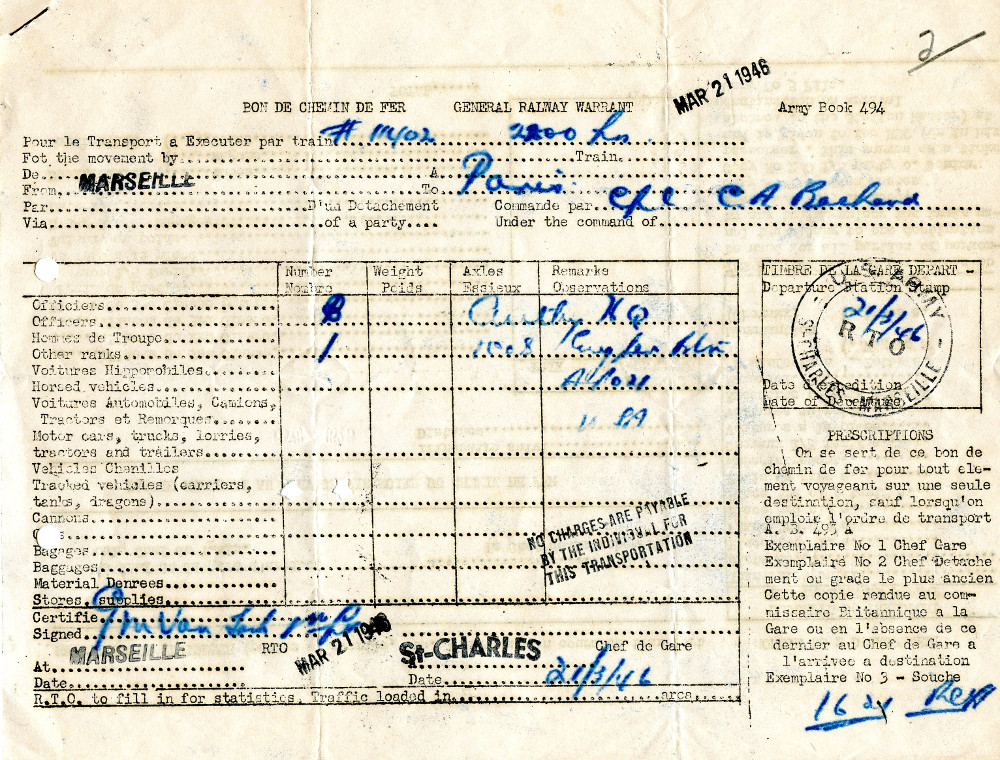 2
MAR 21 1946
BON DE CHEMIN DE FER GENERAL RALWAY WARRANT Army Book 494
Pour le Transport a Executer par train # 11402 2200 hrs.
Fot the movement by Train.
De A
From MARSEILLE To Paris.
Par D'un Detachement Commande par Cpl C A
Via of a party Under the command of
Number Weight Axles Remarks
Nombre Poids Essieux Observations
Officiers
Officers
Hommes de Troupe
Other ranks 1 1508
Voitures Hippomobiles
Horsed vehicles
Voitures Automobiles, Camions,
Tractors et Remorques
Motor cars, trucks, lorries,
tractors and trailers
Vehicles Chenilles
Tracked vehicles (carriers,
tanks, dragons)
Cannons
Bagages
Baggages
Material Denrees
Stores, supplies
HQ
USA
NO CHARGES ARE PAYABLE
BY THE INDIVIDUAL FOR
THIS TRANSPORTATION
Certifie
Signed
MARSEILLE RTO MAR 21 1946 St-CHARLES Chef de Gare
At
Date Date 21/3/46
R.T.O. to fill in for statistics. Traffic loaded in area
TIMBRE DE LA GARE DEPART -
Departure Station Stamp
U.S. ARMY
21/3/46
RTO
ST CHARLES - MARSEILLE -
Date d'expedition
Date of Departure
PRESCRIPTIONS
On se sert de ce bon de
chemin de fer pour tout ele-
ment voyageant sur une seule
destination, sauf lorsqu'on
emploie l'ordre de transport
A. B. 493 A
Exemplaire No 1 Chef Gare
Exemplaire No 2 Chef Detache
ment ou grade le plus ancien
Cette copie rendue au com-
missaire Britannique a la
Gare ou en l'absence de ce
dernier au Chef de Gare a
l'arrivee a destination
Exemplaire No 3 - Souche